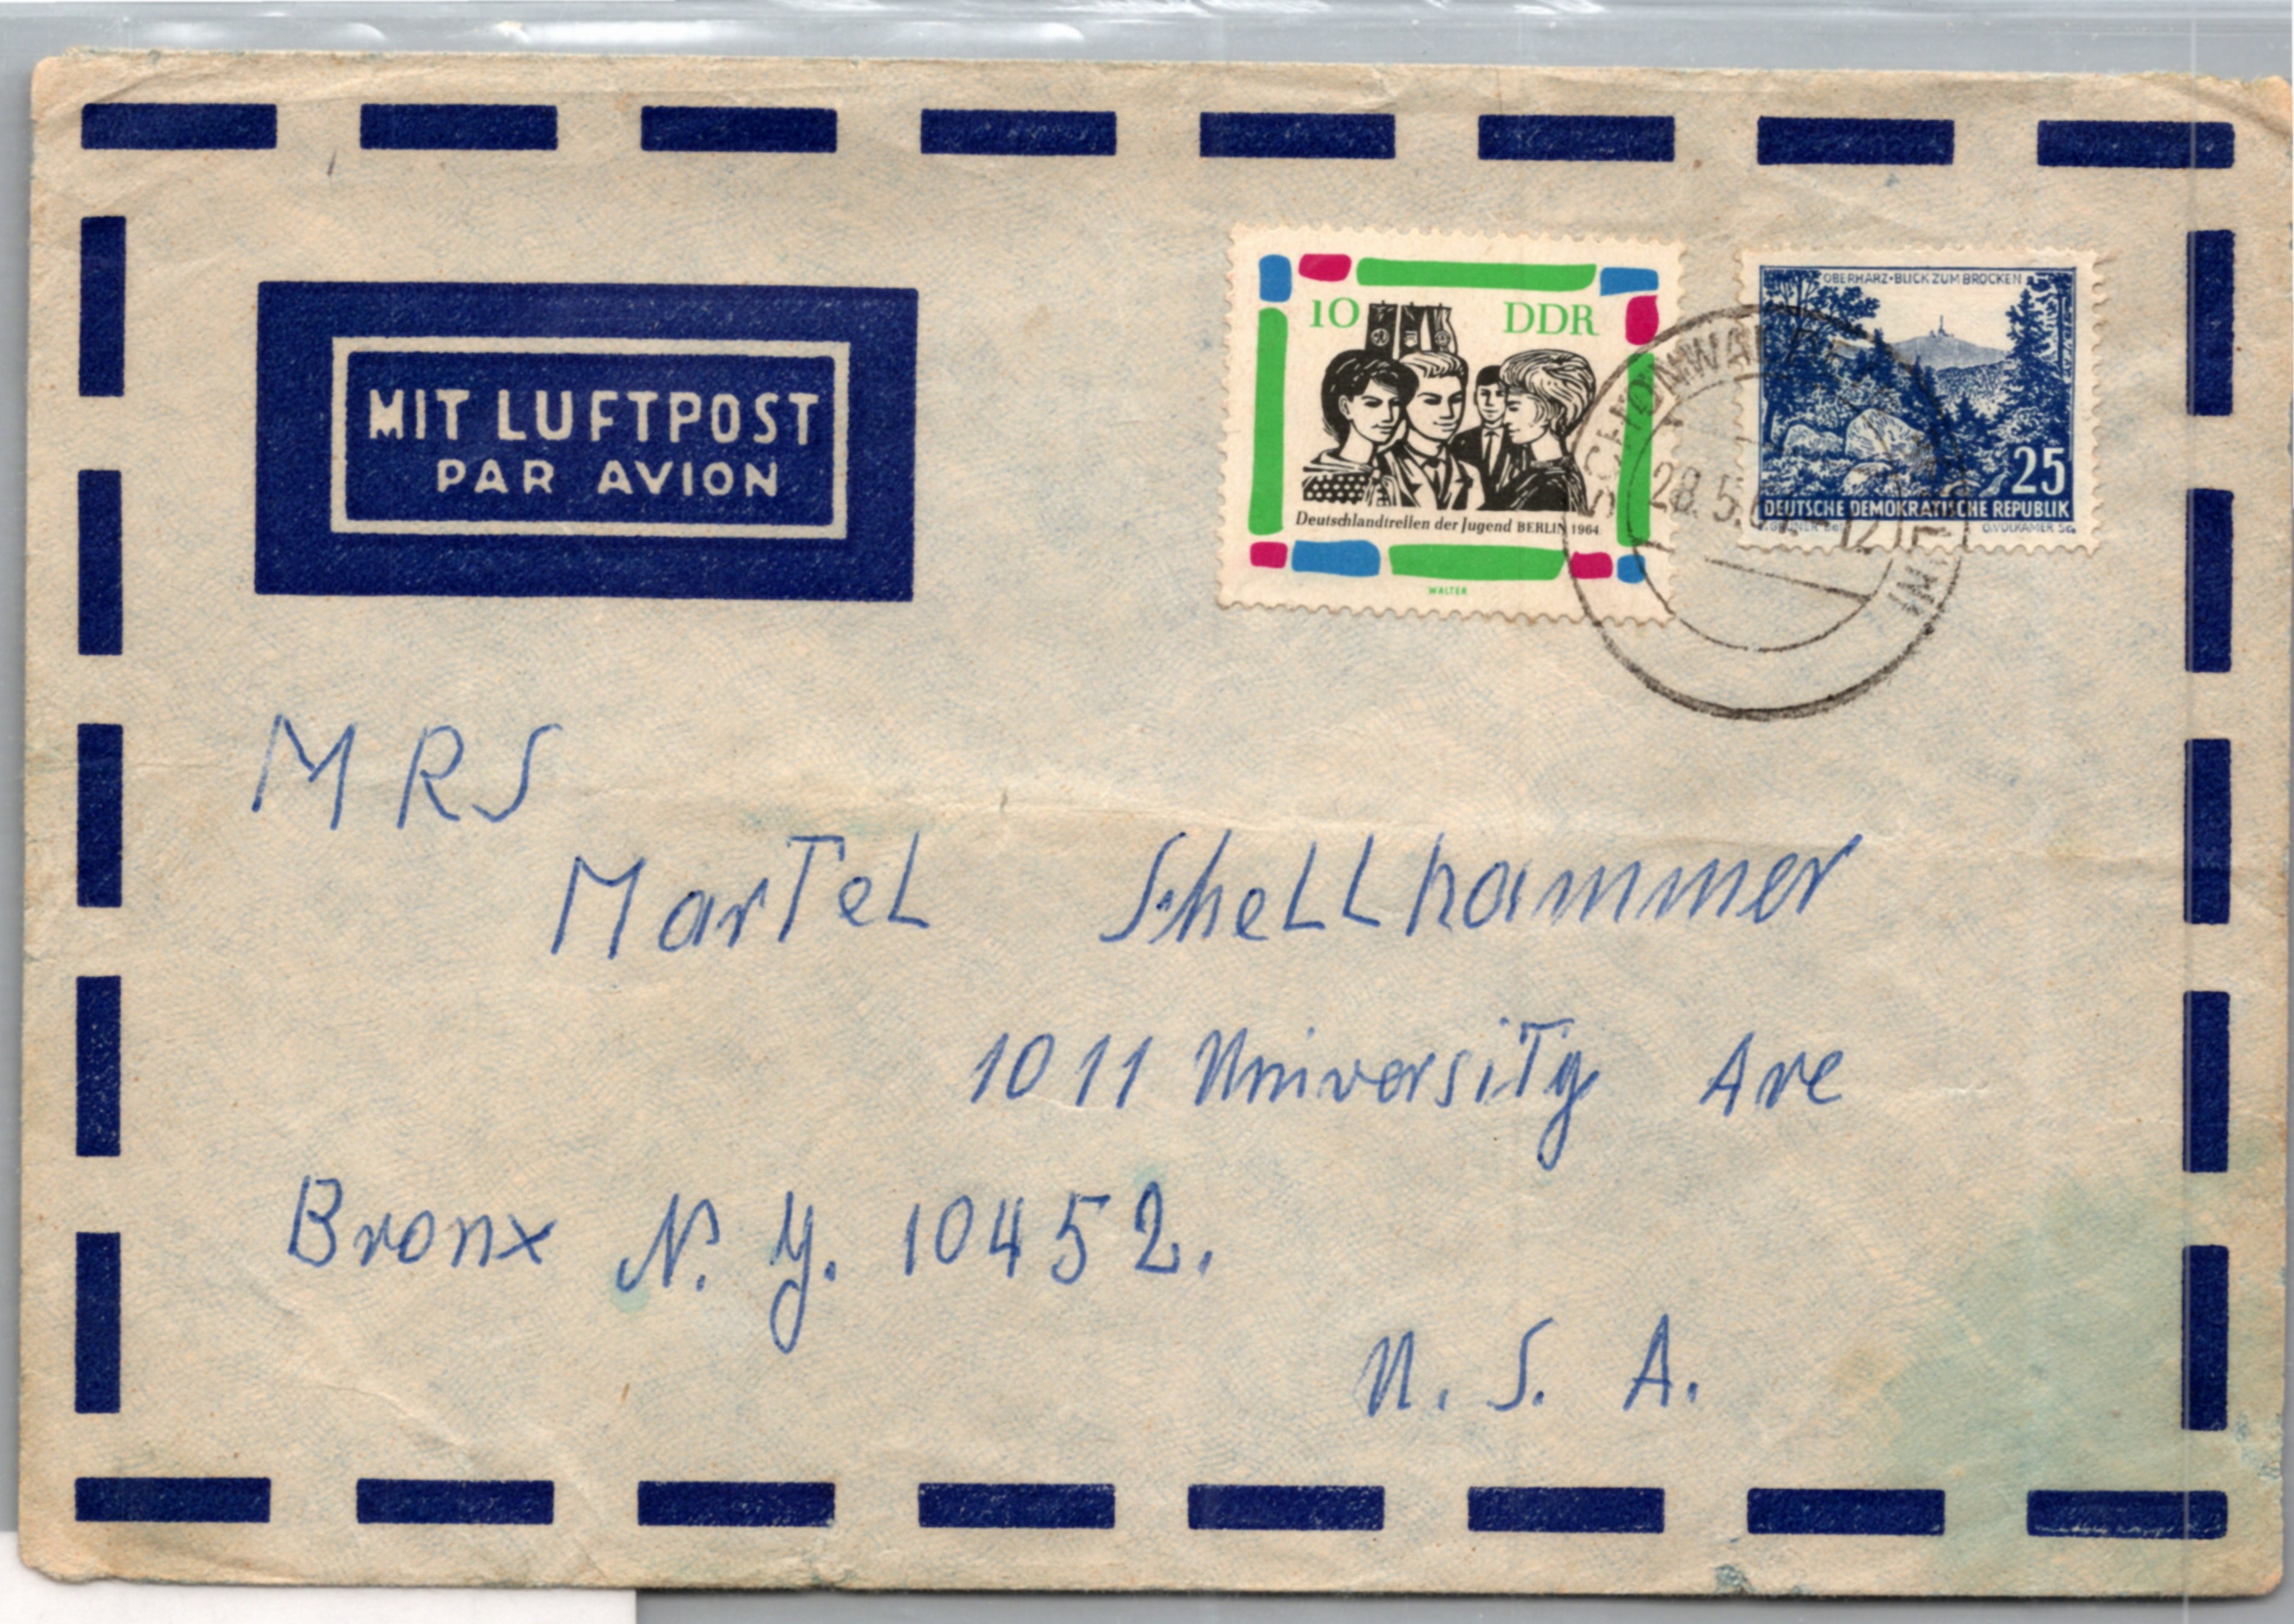 MIT LUFTPOST
PAR AVION
10 DDR
Deutschlandtreffen der Jugend BERLIN 1964
WALTER
OBERHARZ·BLICK ZUM BROCKEN
25
DEUTSCHE DEMOKRATISCHE REPUBLIK
O.VOLKAMER Sc.
28.5.
12
MRS
MarTeL SheLLhammer
1011 UniversiTy Ave
Bronx N. Y. 10452.
U. S. A.